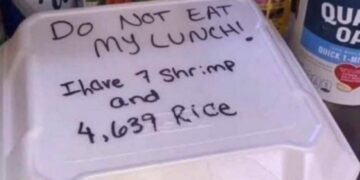 DO NOT EAT
MY LUNCH!
I have 7 Shrimp
and
4,639 Rice
QUA
OA
QUICK 1-M